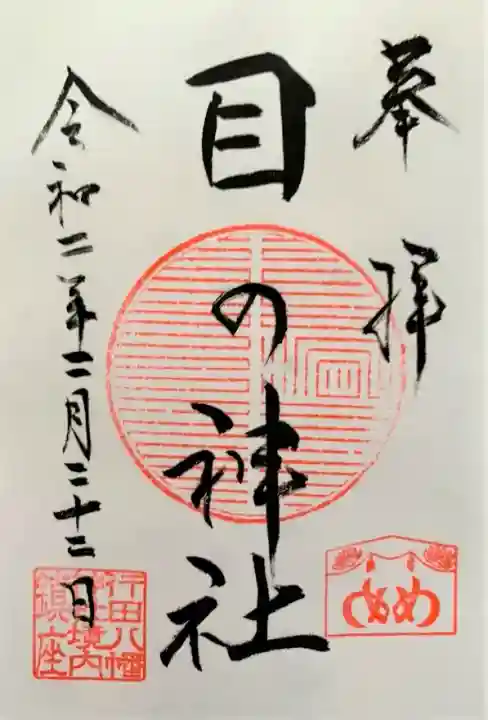 奉拝
目の神社
令和二年二月二十二日
行田八幡
神社境内
鎮座
めめ